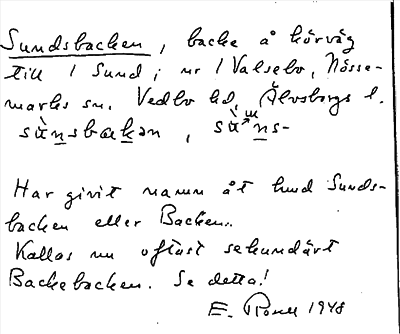 Sundsbacken, backe å körväg
till 1 Sund i nr 1 Valsebo, Nösse-
marks sn. Vedbo hd, Älvsborgs l.
sùn̲sbak̲ən, sùn̲s-
Har givit namn åt hmd Sunds-
backen eller Backen.
Kallas nu oftast sekundärt
Backebacken. Se detta!
E. 1948